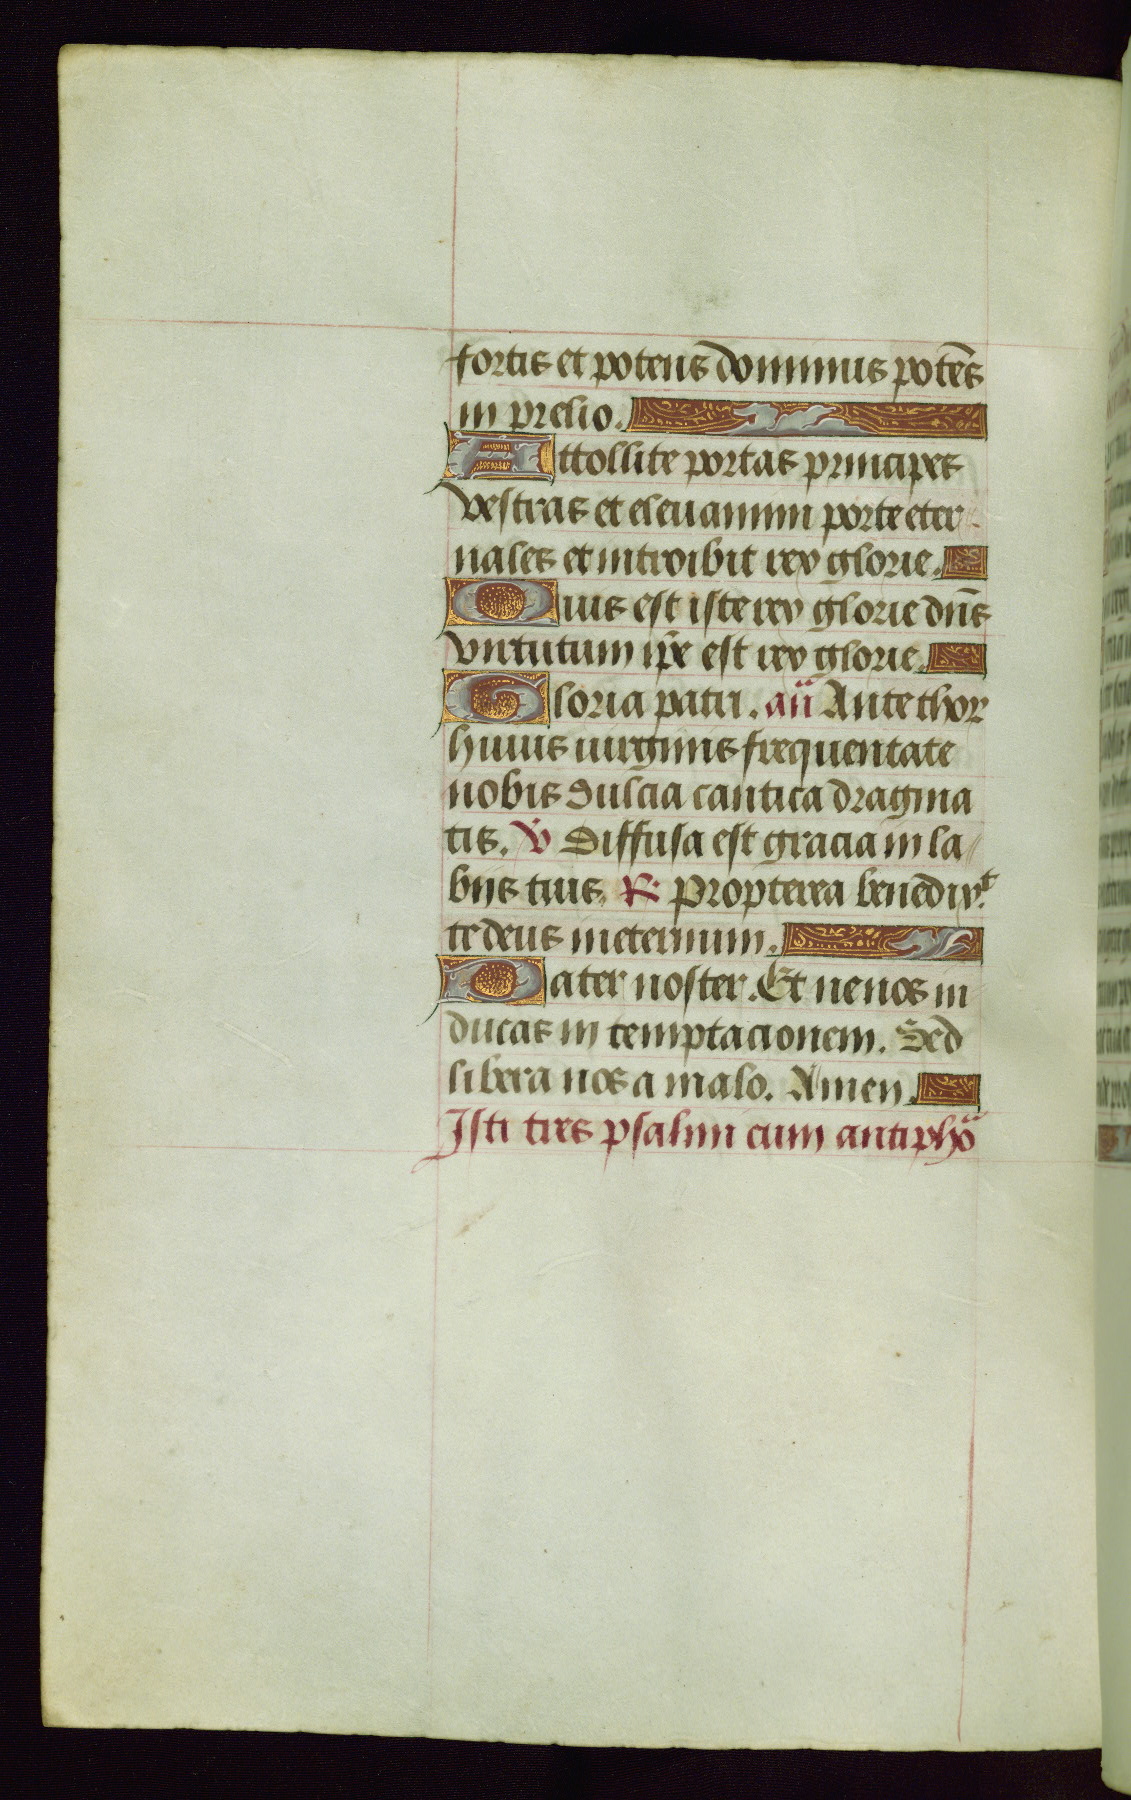 fortis et potens dominus potēs
in prelio.
Attollite portas principes
vestras et eleuamini porte eter-
nales et introibit rex glorie.
Quis est iste rex glorie dn̄s
virtutum ip̄e est rex glorie.
Gloria patri. an̄ Ante thor
huius uirginis frequentate
nobis dulcia cantica dragma
tis. ℣ Diffusa est gracia in la//
biis tuis. ℟. Propterea benedix.t
te deus in eternum.
Pater noster. Et ne nos in
ducas in temptacionem. Sed
libera nos a malo. Amen.
Isti tres psalmi cum antiphō